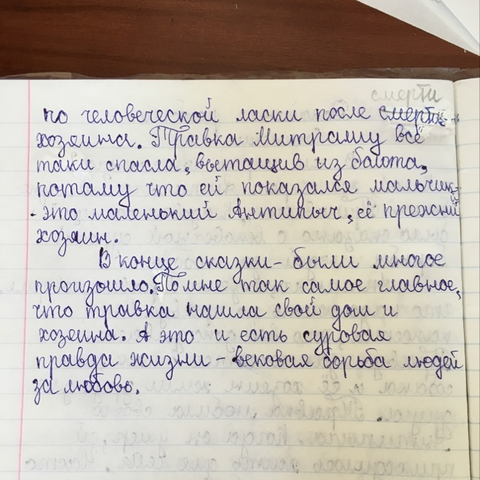 смерти
по человеческой ласки после смерти
хозяина. Травка Митрашу всё
таки спасла, вытащив из болота,
потаму что ей показался мальчик-
- это маленький Антипыч, её прежний
хозяин.
В конце сказки - были многое
произошло. По мне так самое главное,
что травка нашла свой дом и
хозеина. А это и есть суровая
правда жизни - вековая борьба людей
за любовь.